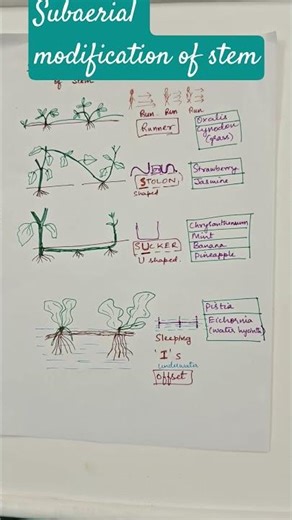 Subaerial
modification of stem
of Stem
Run Run Run
Runner
Oxalis
Cynodon
(grass)
STOLON
Shaped
Strawberry
Jasmine
SUCKER
U shaped
Chrysanthemum
Mint
Banana
Pineapple
Pistia
Eichornia
(water hyacinth)
Sleeping
'I's
underwater
Offset